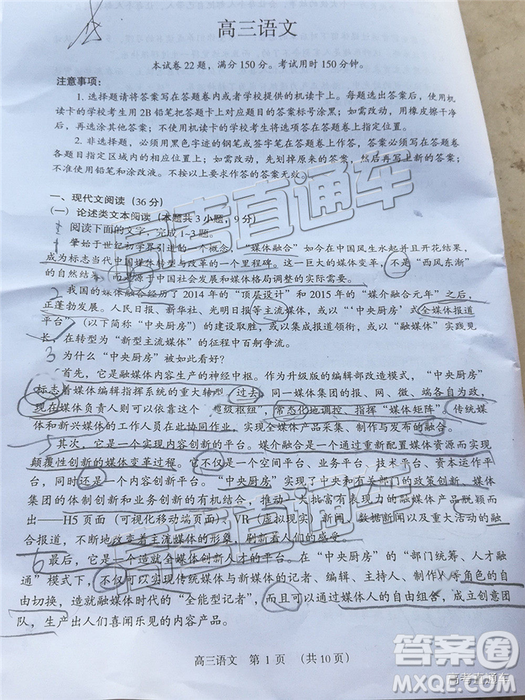 高三语文
本试卷22题，满分150分。考试用时150分钟。
注意事项：
1. 选择题请将答案写在答题卷内或者学校提供的机读卡上。每题选出答案后，使用机
读卡的学校考生用2B铅笔把答题卡上对应题目的答案标号涂黑；如需改动，用橡皮擦干净
后，再选涂其他答案；不使用机读卡的学校考生请将答案写在答题卷上指定位置。
2. 非选择题，必须用黑色字迹的钢笔或签字笔在答题卷上作答，答案必须写在答题卷
各题目指定区域内的相应位置上；如需改动，先划掉原来的答案，然后再写上新的答案；
不准使用铅笔和涂改液。不按以上要求作答的答案无效。
一、现代文阅读（36分）
（一）论述类文本阅读（本题共3小题，9分）
阅读下面的文字，完成1-3题。
肇始于世纪之交引进的一个概念，“媒体融合”如今在中国风生水起并且开花结果，
成为标志当代中国媒体转型与改革的一个里程碑。这一巨大的媒体变革，不是“西风东渐”
的自然结果，而是源于中国社会发展和媒体格局调整的实际需要。
我国的媒体融合经历了2014年的“顶层设计”和2015年的“媒介融合元年”之后，
正蓬勃发展。人民日报、新华社、光明日报等主流媒体，或以“‘中央厨房’式全媒体报道
平台”（以下简称“中央厨房”）的建设取胜，或以集成报道领衔，或以“融媒体”实践见
长，在转型为“新型主流媒体”的征程中百舸争流。
3 为什么“中央厨房”被如此看好？
首先，它是融媒体内容生产的神经中枢。作为升级版的编辑部改造模式，“中央厨房”
标志着媒体编辑指挥系统的重大转型。过去，同一媒体集团的报、网、微、端各自为政，
现在媒体负责人则可以依靠这个“超级枢纽”，常态化地调控、指挥“媒体矩阵”，传统媒
体和新兴媒体的工作人员在此协同作业，实现全媒体产品采集、制作与发布的融合。
5 其次，它是一个实现内容创新的平台。媒介融合是一个通过重新配置媒体资源而实现
颠覆性创新的媒体变革过程。它不仅是一个空间平台、业务平台、技术平台、资本运作平
台，同时还是一个内容创新平台。“中央厨房”实现了中央和有关部门的政策创新、媒体
集团的体制创新和业务创新的有机结合，推动一大批富有表现力的融媒体产品脱颖而
出——H5页面（可视化移动端页面）、VR（虚拟现实）新闻、数据新闻以及重大活动的融
合报道，不断地改变着主流媒体的形象，刷新着人们的感受。
6 最后，它是一个造就全媒体创新人才的平台。在“中央厨房”的“部门统筹、人才融
通”模式下，不仅可以实现传统媒体与新媒体的记者、编辑、主持人、制作人等角色的自
由切换，造就融媒体时代的“全能型记者”，而且可以通过媒体人的自由组合，成立创意团
队，生产出人们喜闻乐见的内容产品。
高三语文 第1页 （共10页）
直通车
答案圈
MXQE.COM